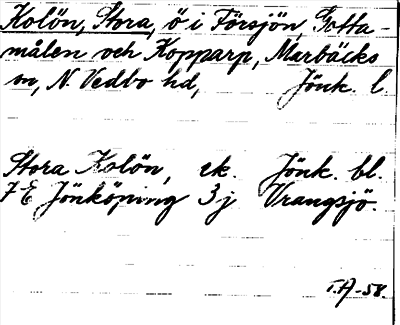 Kolön, Stora, ö i Försjön, Gotta-
målen och Kopparp, Marbäcks
sn, N. Vedbo hd, Jönk. l.
Stora Kolön, ek. Jönk. bl.
7 E Jönköping 3 j Vrangsjö.
T.A-58.